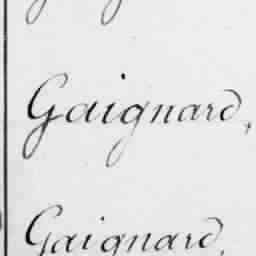 Gaignard,
Gaignard,